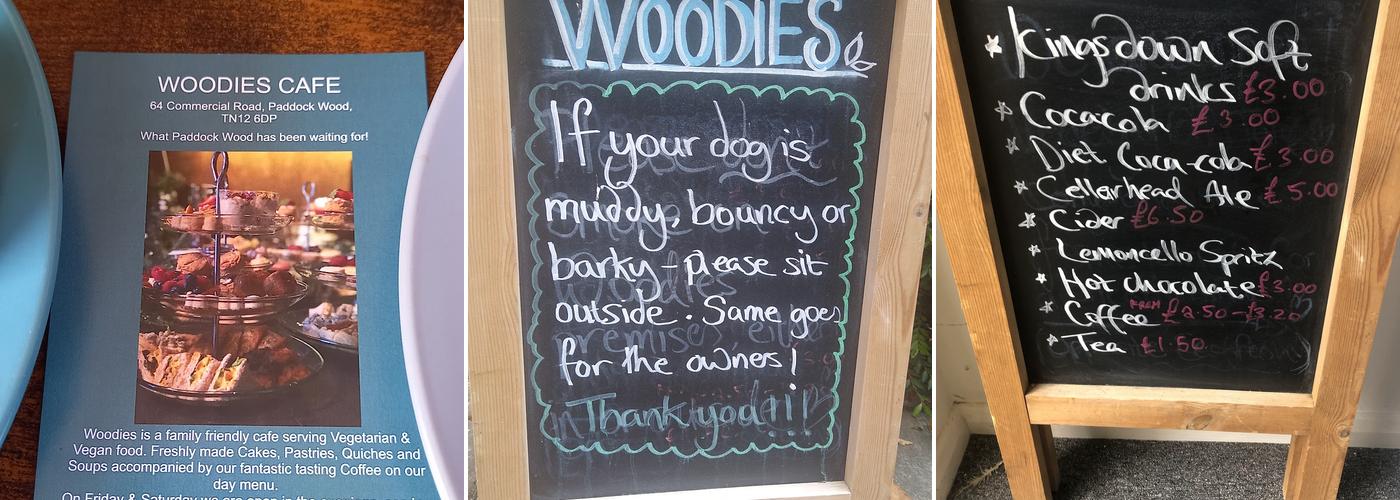 WOODIES CAFE
64 Commercial Road, Paddock Wood,
TN12 6DP
What Paddock Wood has been waiting for!
Woodies is a family friendly cafe serving Vegetarian &
Vegan food. Freshly made Cakes, Pastries, Quiches and
Soups accompanied by our fantastic tasting Coffee on our
day menu.
On Friday & Saturday we are open in the
WOODIES
If your dog is
muddy, bouncy or
barky - please sit
outside. Same goes
for the owners!
Thank you!!!
Kingsdown Soft
drinks £3.00
Cocacola £3.00
Diet Coca-cola £3.00
Cellarhead Ale £5.00
Cider £6.50
Lemoncello Spritz
Hot chocolate £3.00
Coffee FROM £2.50-£3.20
Tea £1.50